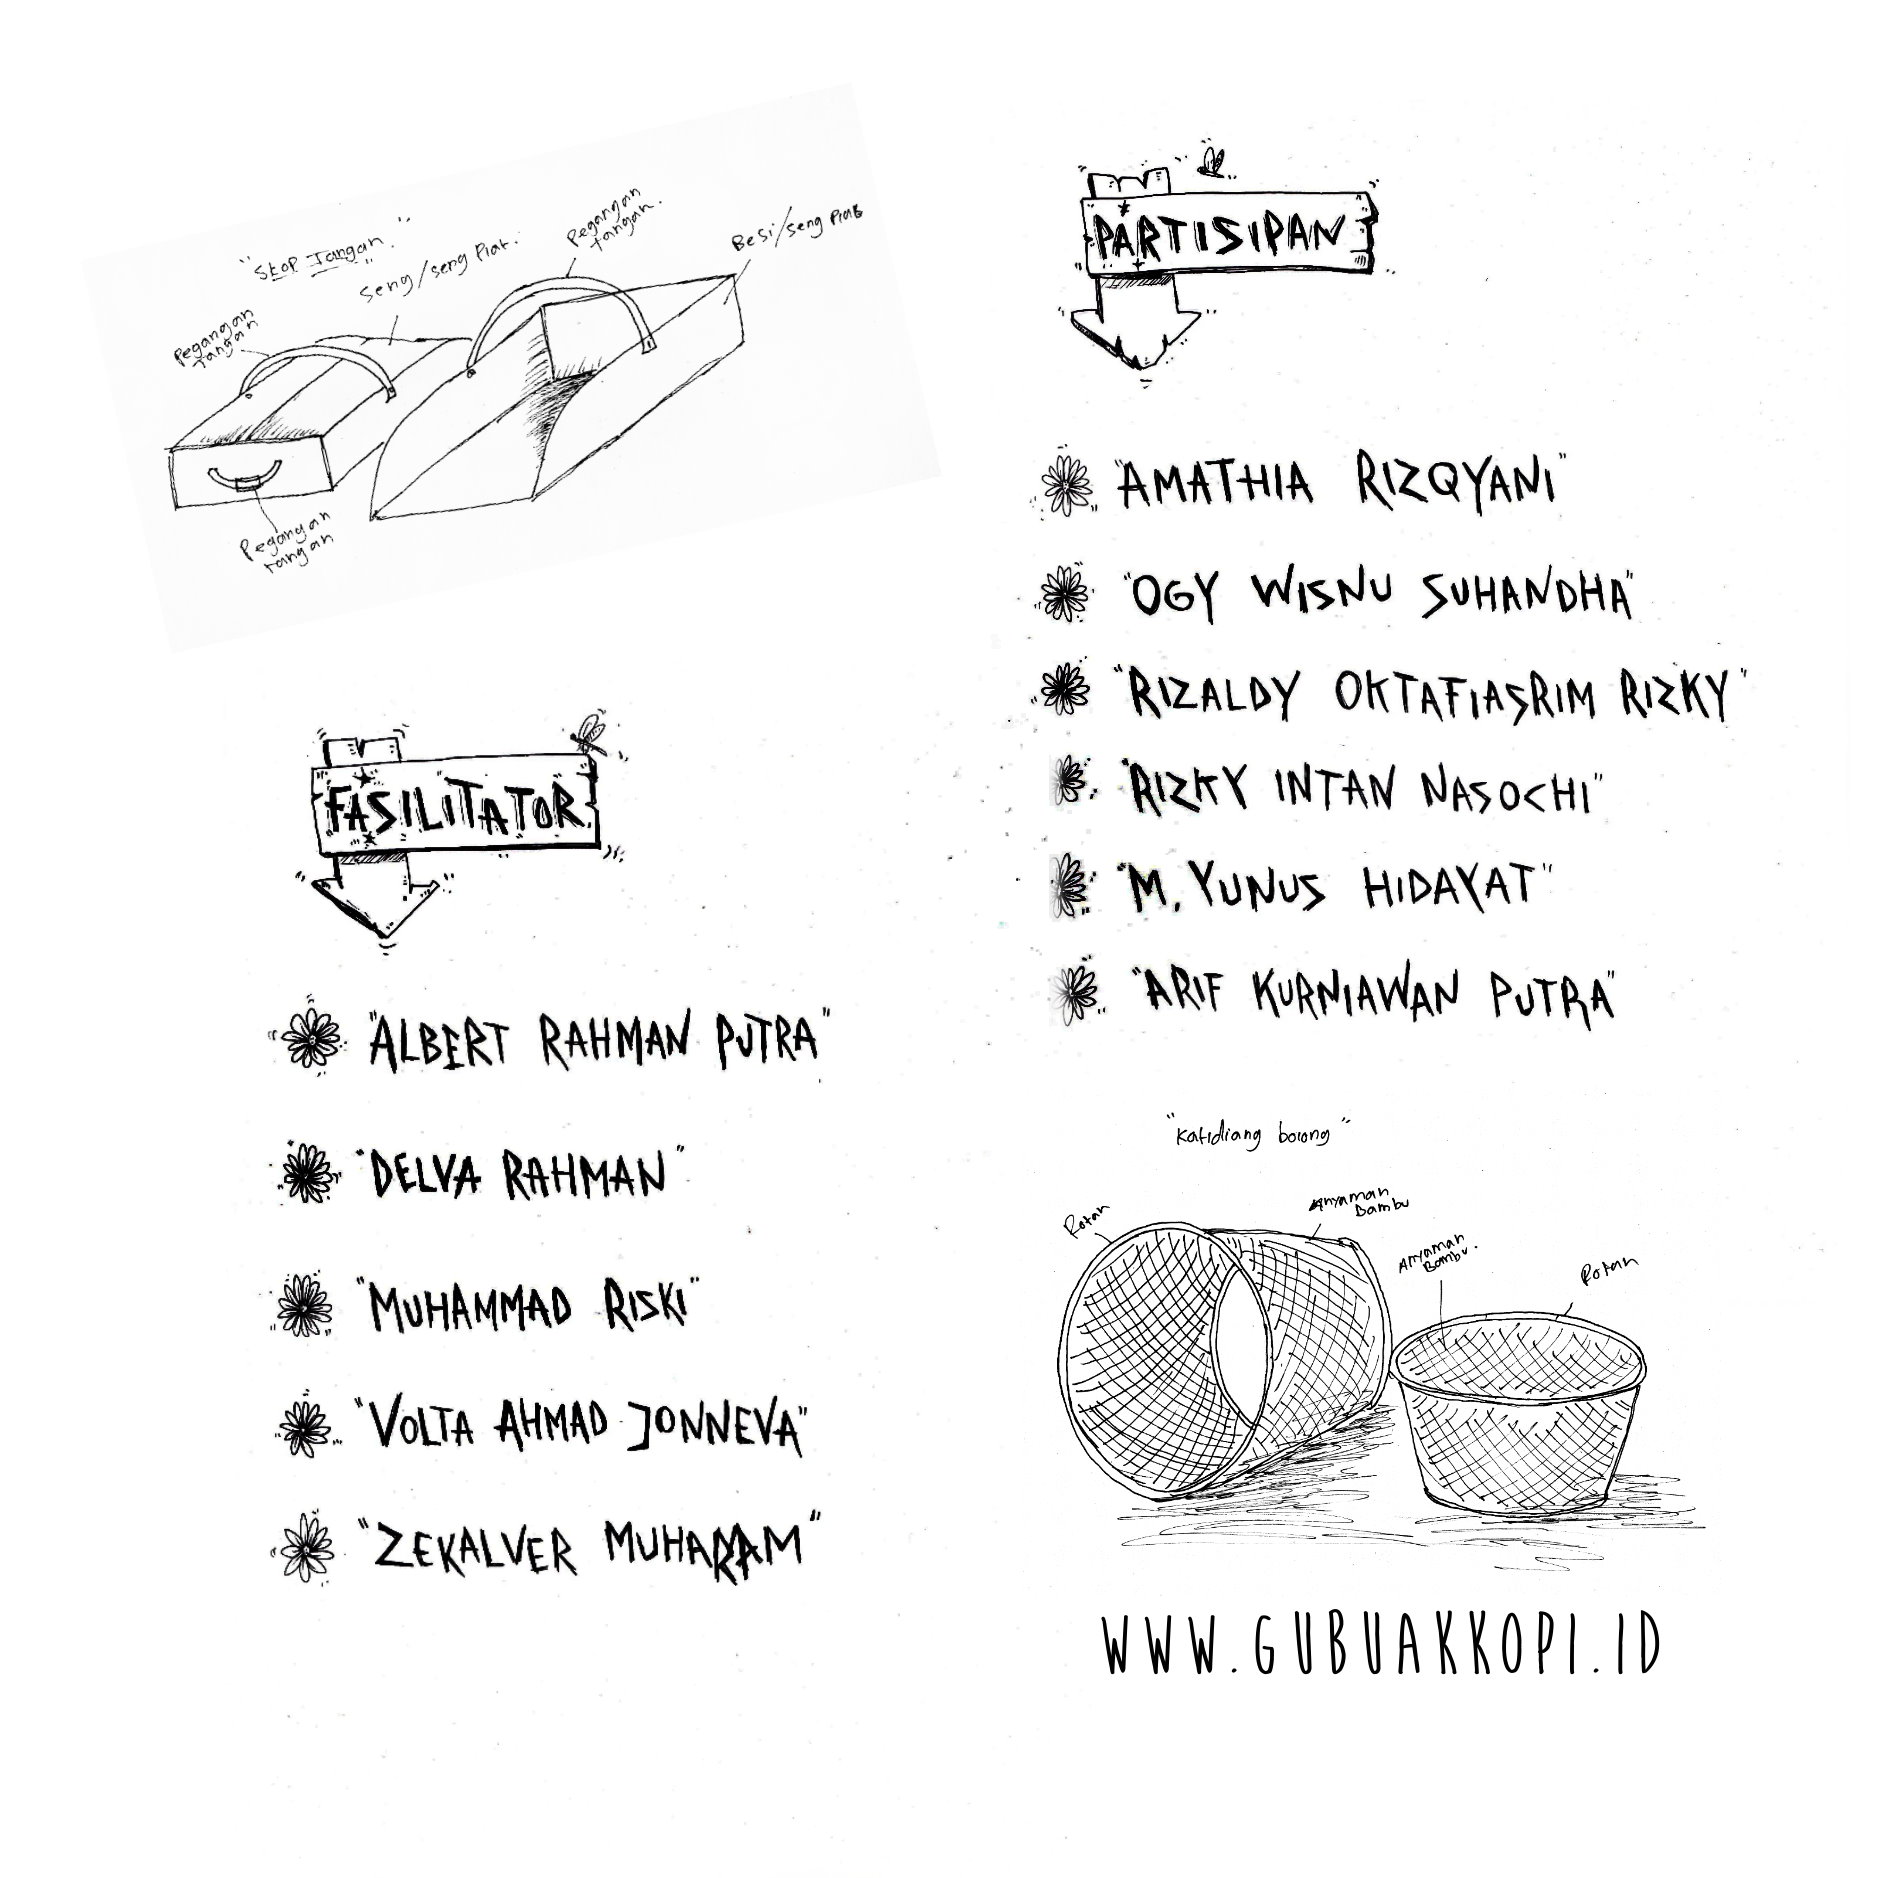 "Skop Tangan"
Seng/seng Plat.
Pegangan
tangan.
Besi/seng Plat
Pegangan
Tangan
Pegangan
tangan
FASILITATOR
"ALBERT RAHMAN PUTRA"
"DELVA RAHMAN"
"MUHAMMAD RISKI"
"VOLTA AHMAD JONNEVA"
"ZEKALVER MUHARAM"
PARTISIPAN
"AMATHIA RIZQYANI"
"OGY WISNU SUHANDHA"
"RIZALDY OKTAFIASRIM RIZKY"
"RIZKY INTAN NASOCHI"
"M. YUNUS HIDAYAT"
"ARIF KURNIAWAN PUTRA"
"Katidiang bolong"
Rotan
Anyaman
Bambu
Anyaman
Bambu.
Rotan
WWW.GUBUAKKOPI.ID